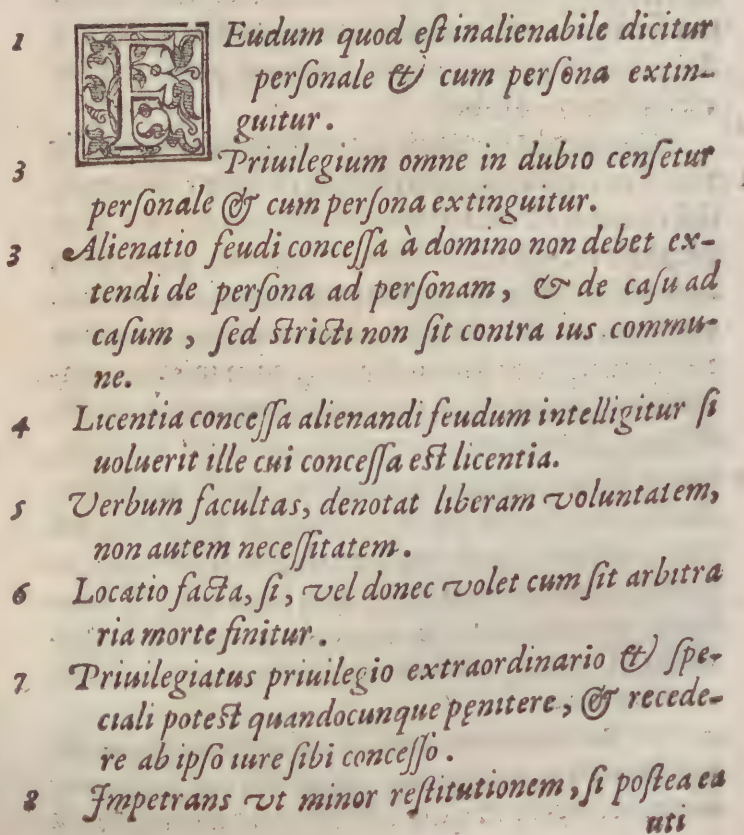 1 FEudum quod eſt inalienabile dicitur
perſonale & cum perſona extin-
guitur.
3 Priuilegium omne in dubio cenſetur
perſonale & cum perſona extinguitur.
3 Alienatio feudi conceſſa à domino non debet ex-
tendi de perſona ad perſonam, & de caſu ad
caſum, ſed ſtricti non ſit contra ius commu-
ne.
4 Licentia conceſſa alienandi feudum intelligitur ſi
uoluerit ille cui conceſſa eſt licentia.
5 Verbum facultas, denotat liberam voluntatem,
non autem neceſſitatem.
6 Locatio facta, ſi, vel donec volet cum ſit arbitra
ria morte finitur.
7 Priuilegiatus priuilegio extraordinario & ſpe-
ciali poteſt quandocunque pęnitere, & recede-
re ab ipſo iure ſibi conceſſo.
8 Impetrans vt minor reſtitutionem, ſi poſtea ea
uti